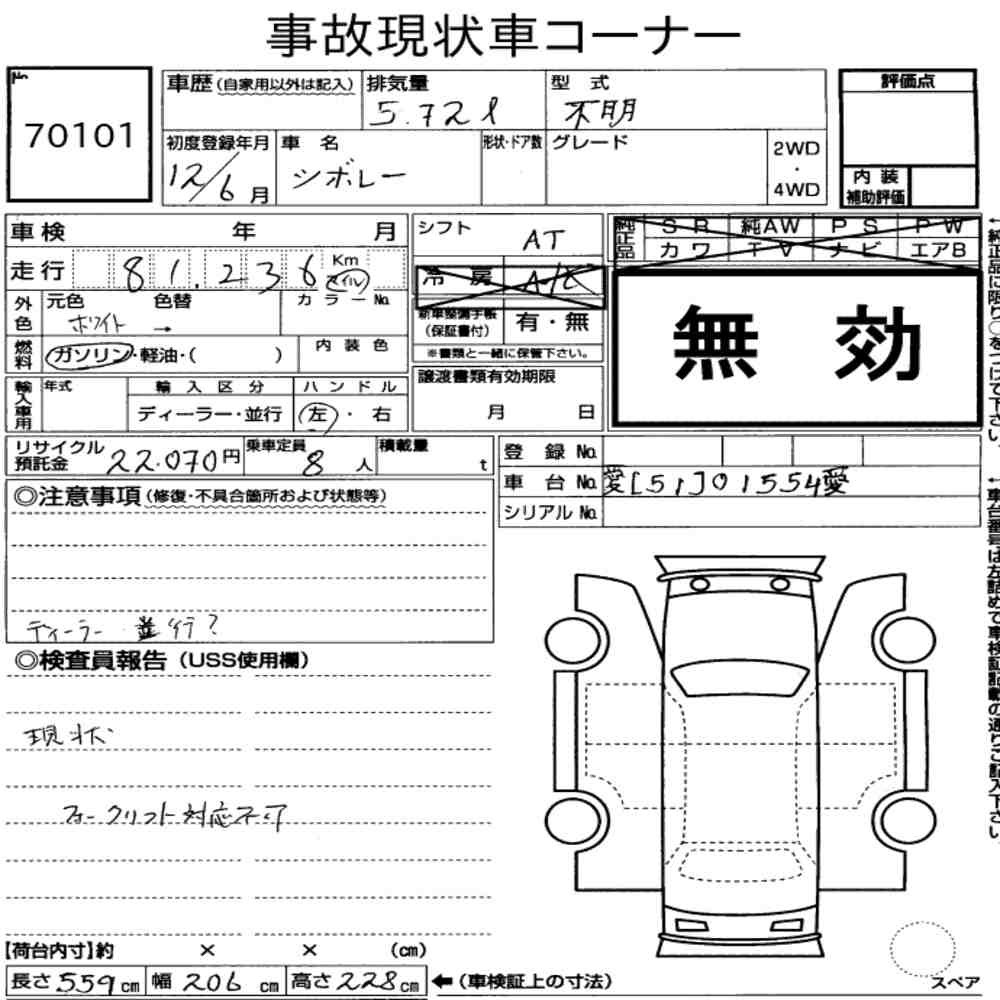 事故現状車コーナー
No.
70101
車歴(自家用以外は記入) 排気量 5.72ℓ 型式 不明
初度登録年月 12/6月 車名 シボレー 形状・ドア数 グレード 2WD・4WD
評価点
内装補助評価
車検 年 月
走行 81,236 Km マイル
外色 元色 ホワイト 色替 → カラーNo.
燃料 ガソリン・軽油・( ) 内装色
輸入車用 年式 輸入区分 ディーラー・並行 ハンドル 左・右
シフト AT
冷房 A/C
新車整備手帳(保証書付) 有・無
※書類と一緒に保管下さい。
譲渡書類有効期限
月 日
純正品 SR 純AW PS PW
カワ TV ナビ エアB
無効
リサイクル預託金 22,070円 乗車定員 8人 積載量 t
登録No.
車台No. 愛[51]01554愛
シリアルNo.
◎注意事項(修復・不具合箇所および状態等)
ディーラー 並行?
◎検査員報告(USS使用欄)
現状
フォークリフト対応不可
【荷台内寸】約 × × (cm)
長さ559cm 幅206cm 高さ228cm ←(車検証上の寸法)
スペア
←純正品に限り○をつけて下さい。
←車台番号は左詰めで車検証記載の通りご記入下さい。